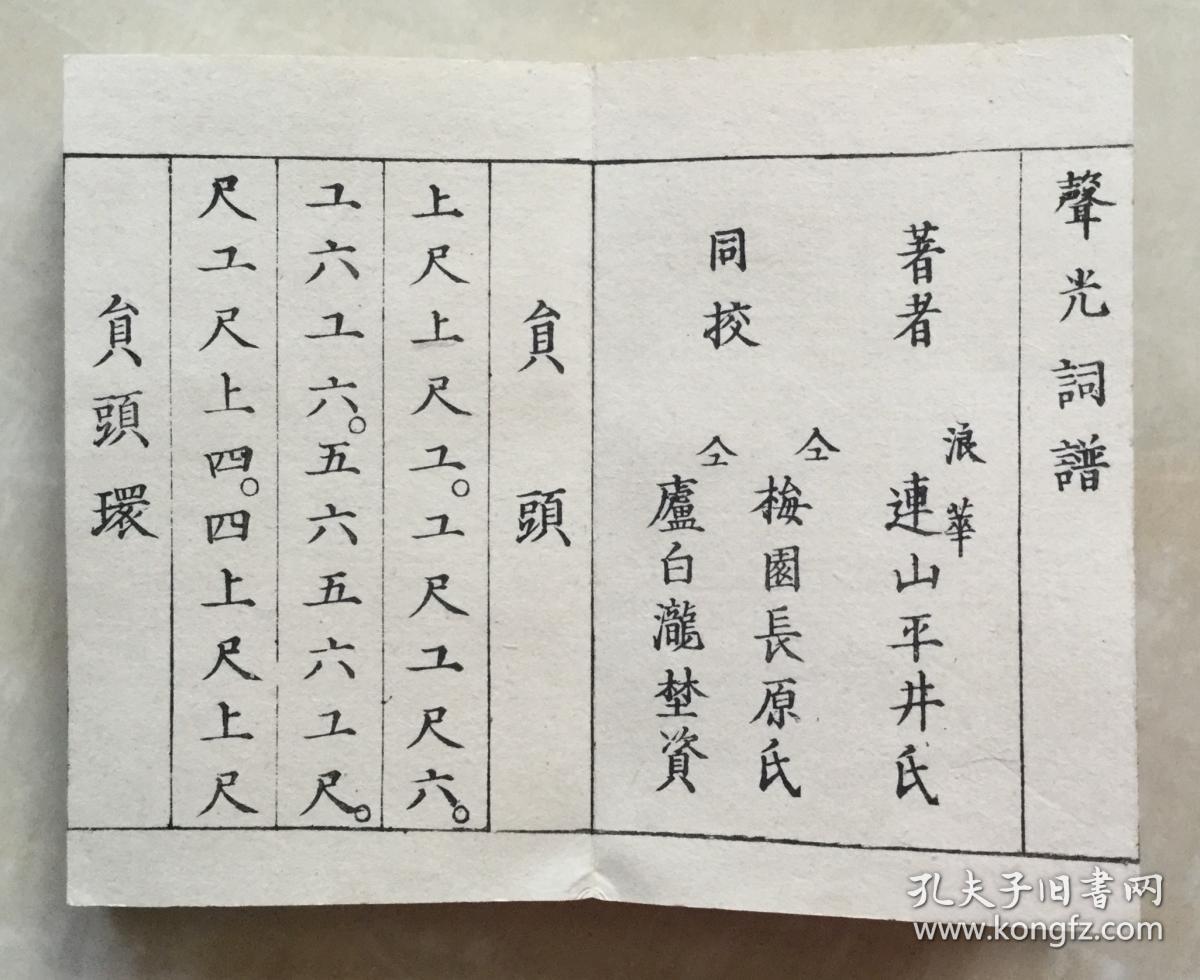 聲光詞譜
著者
浪華
連山平井氏
同挍
仝
梅園長原氏
仝
廬白瀧埜資
貟頭
上尺上尺工。工尺工尺六。
工六工六。五六五六工尺。
尺工尺上四。四上尺上尺
貟頭環
孔夫子旧书网
www.kongfz.com